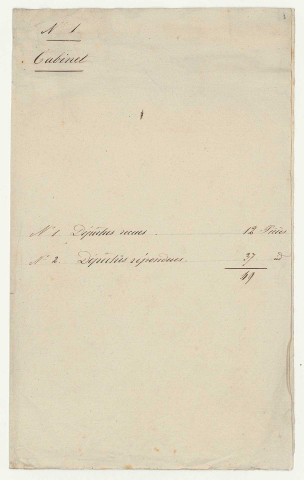 N 1
Cabinet
N. 1. Dépêches recues. 12 Pièces
N. 2. Dépêches répondues. 37 d.
49